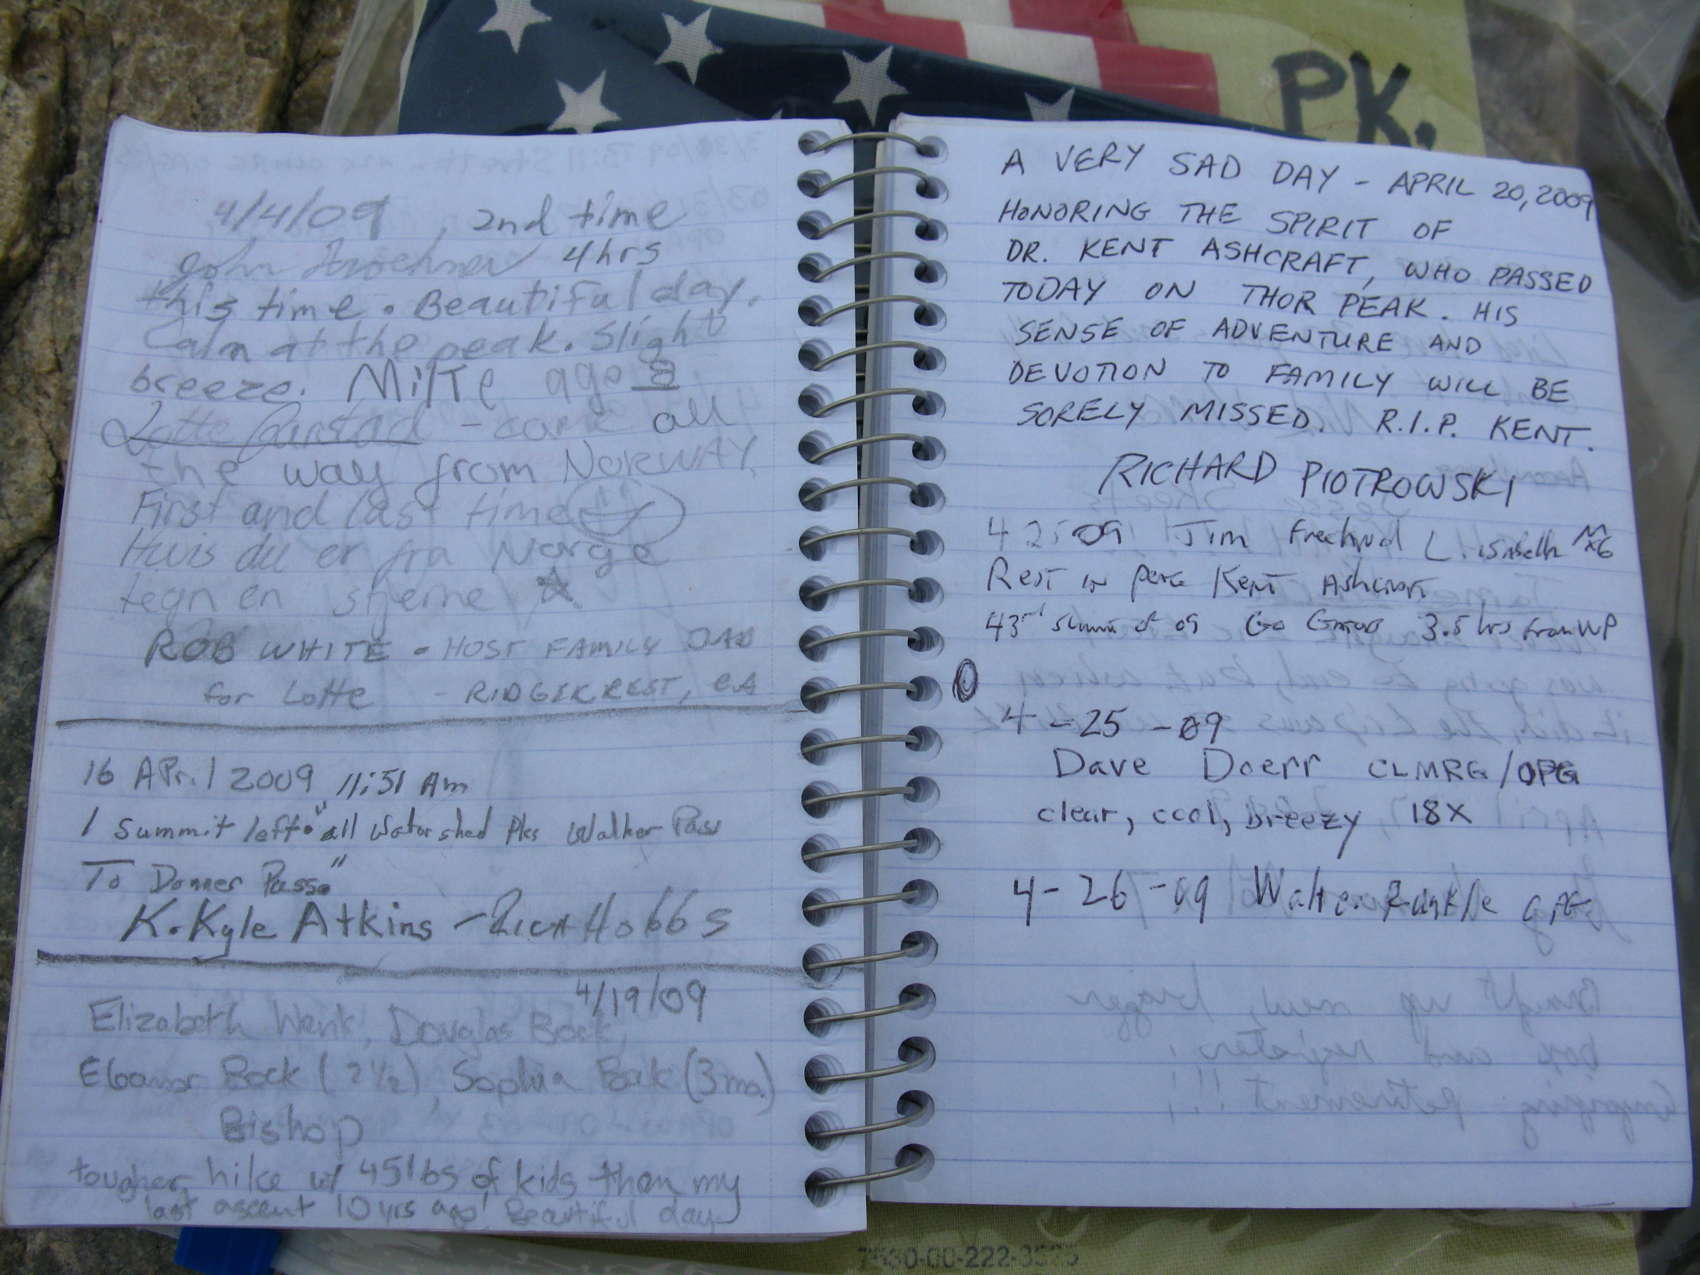 PK.
4/4/09 2nd time
John 4hrs
this time. Beautiful day.
Calm at the peak. Slight
breeze. Mike age 8
Lotte - came all
the way from NORWAY
First and last time
Hvis du er fra Norge
tegn en stjerne ☆
ROB WHITE - HOST FAMILY DAD
for Lotte - RIDGECREST, CA
16 APril 2009 11:51 Am
1 Summit left "all Watershed Pks Walker Pass
To Donner Pass."
K. Kyle Atkins - Rich Hobbs
4/19/09
Elizabeth Wenk, Douglas Bock,
Eleanor Bock (2 1/2), Sophia Bock (3 mo.)
Bishop
tougher hike w/ 45 lbs of kids than my
last ascent 10 yrs ago! Beautiful day
A VERY SAD DAY - APRIL 20, 2009
HONORING THE SPIRIT OF
DR. KENT ASHCRAFT, WHO PASSED
TODAY ON THOR PEAK. HIS
SENSE OF ADVENTURE AND
DEVOTION TO FAMILY WILL BE
SORELY MISSED. R.I.P. KENT.
RICHARD PIOTROWSKI
09 Jim L. isabella
Rest in peace Kent Ashcraft
43rd summit of 09 Go 3.5 hrs from WP
4-25-09
Dave Doerr CLMRG/OPG
clear, cool, breezy 18X
4-26-09 Walter Runkle OPG
7530-00-222-3525